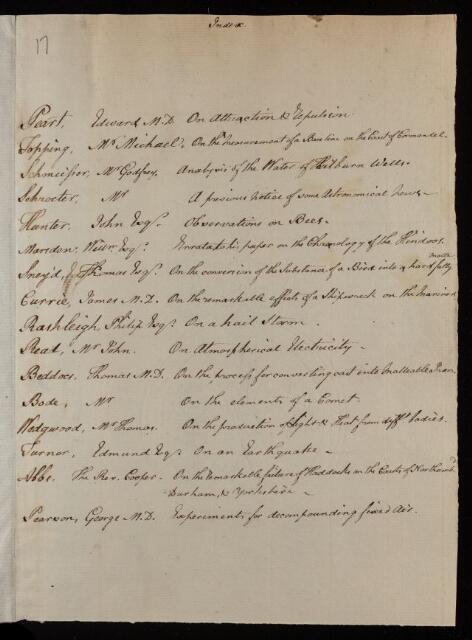 Index.
17
Peart, Edward M.D. On Attraction & Repulsion
Topping, Mr. Michael. On the measurement of a Baseline on the Coast of Coromandel.
Schmeisser, Mr Godfrey. Analysis of the Water of Kilburn Wells.
Schroeter, Mr A previous Notice of some Astronomical News
Hunter, John Esqr. Observations on Bees.
Marsden, Willm. Esqr. Errata to his paper on the Chronology of the Hindoos.
Sneyd, Thomas Esqr. On the conversion of the Substance of a Bird into a hard fatty matter
Currie, James M.D. On the remarkable effects of a Shipwreck on the Mariners
Rashleigh, Philip Esqr. On a hail Storm.
Read, Mr. John. On Atmospherical Electricity
Beddoes, Thomas M.D. On the process for converting cast into Malleable Iron.
Bode, Mr On the elements of a Comet
Wedgwood, Mr Thomas. On the production of Light & Heat from difft. bodies.
Turnor, Edmund Esqr. On an Earthquake
Abbs, The Rev. Cooper. On the remarkable failure of Haddocks on the Coasts of Northumbd.
Durham, & Yorkshire
Pearson, George M.D. Experiments for decompounding fixed Air.